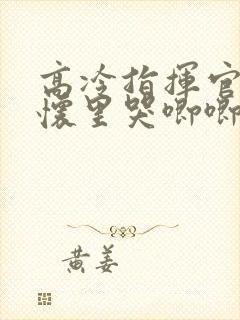 高冷指揮官
懷里哭唧唧
黃姜